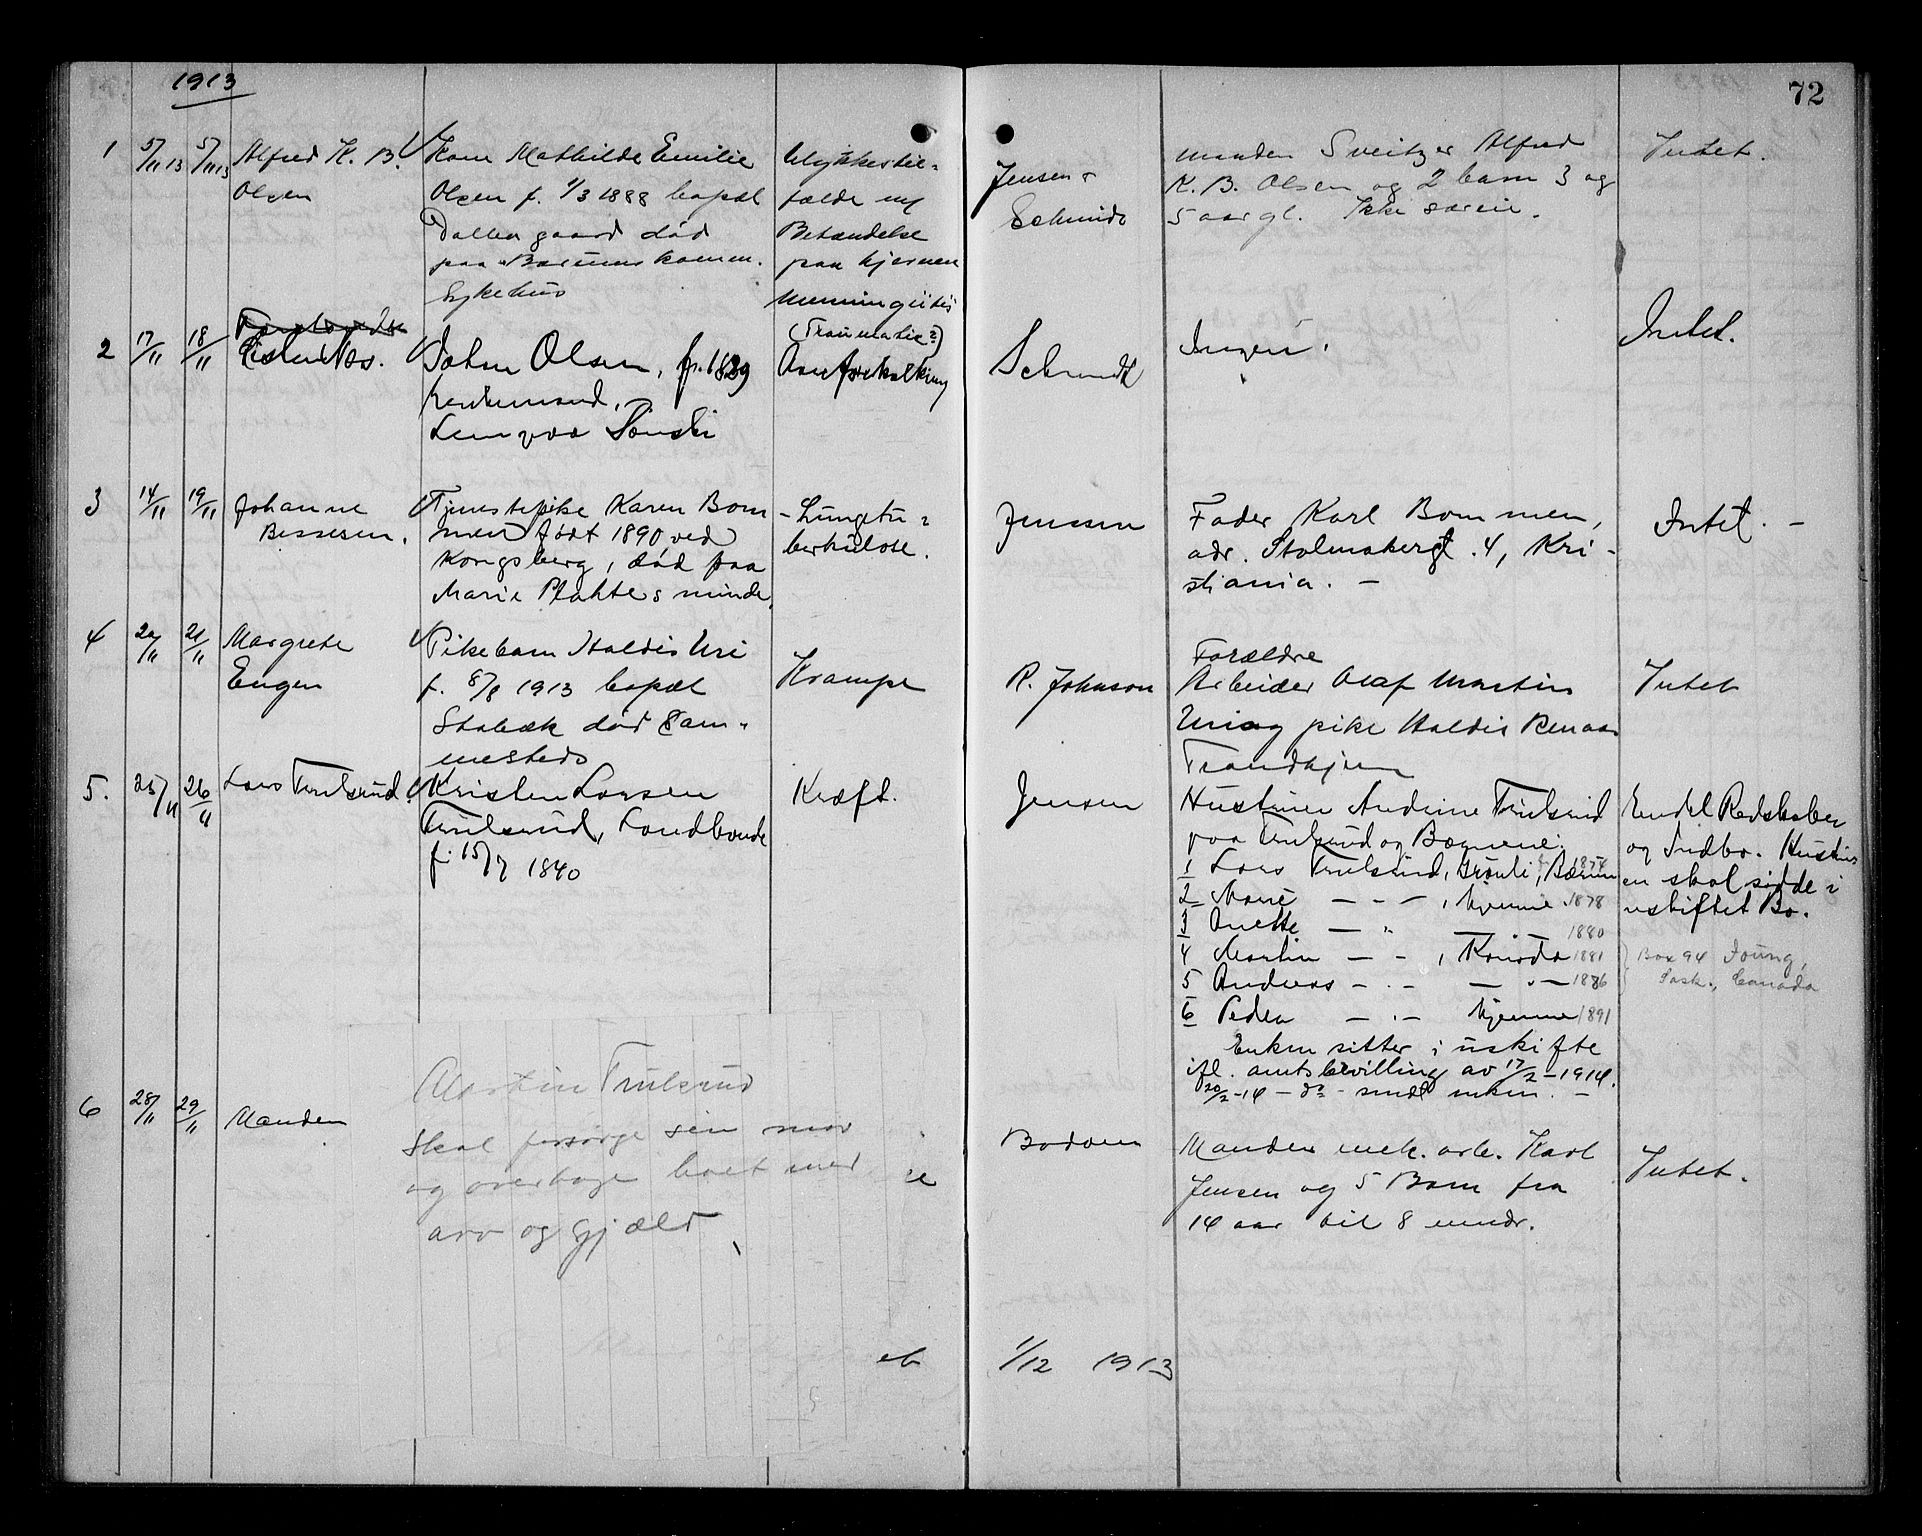 1913
72
1 5/11 13 5/11 13 Alfred K. B. Olsen
Kone Mathilde Emilie
Olsen f. 1/3 1888 bopæl
Dallen gaard død
paa Bærums komm.
Sykehus
Ulykkestil-
fælde
Betændelse
paa hjernen
(Traumatic?)
Jensen &
Schmidt
manden Sveitzer Alfred
K. B. Olsen og 2 barn 3 og
5 aar gl. Ikke særeie.
Intet.
2 17/11 18/11
John Olsen, f. 1839
Aareforkalkning
Schmidt
Ingen.
Intet.
3 14/11 19/11 Johanne
Bessesen.
Tjenestepike Karen Bom
men født 1890 ved
Kongsberg, død paa
Marie Plahtes minde.
Lungetu-
berkulose.
Jenssen
Fader Karl Bommen,
adr. Stolmakergt. 4, Kri-
stiania. –
Intet. –
4 20/11 21/11 Margrete
Engen
Pikebarn Haldis Uri
f. 8/8 1913 bopæl
Stabæk død sam-
mesteds
Krampe
R. Johnson
Forældre
Arbeider Olaf Martin
Uri og pike Haldis Renaas
Trondhjem
Intet
5. 25/11 26/11 Lars Trulsrud.
Kristen Larsen
Trulsrud, Landbonde
f. 15/7 1840
Kræft.
Jensen
Hustruen Andrine Trulsrud
paa Trulsrud og Børnene:
1 Lars Trulsrud, Bærum 1874
2 Marie – – – , hjemme 1878
3 Anette – " – 1880
4 Martin – – , Kanada 1881
5 Andreas – . – – . – 1886
6 Peder – . – hjemme 1891
Enken sitter i uskifte
ifl. amtsbevilling av 17/2 – 1914.
20/2 – 14 – do – sendt enken. –
Endel Redskaber
og Indbo. Hustru
en skal sidde i
uskiftet Bo.
Box 94 Young,
Sask., Canada
Martin Trulsrud
skal forsørge sin mor
og overtage boet med
arv og gjæld
6 28/11 29/11 Manden
Manden mek. arb. Karl
Jensen og 5 Barn fra
14 aar til 8 mndr.
Intet.
1/12 1913